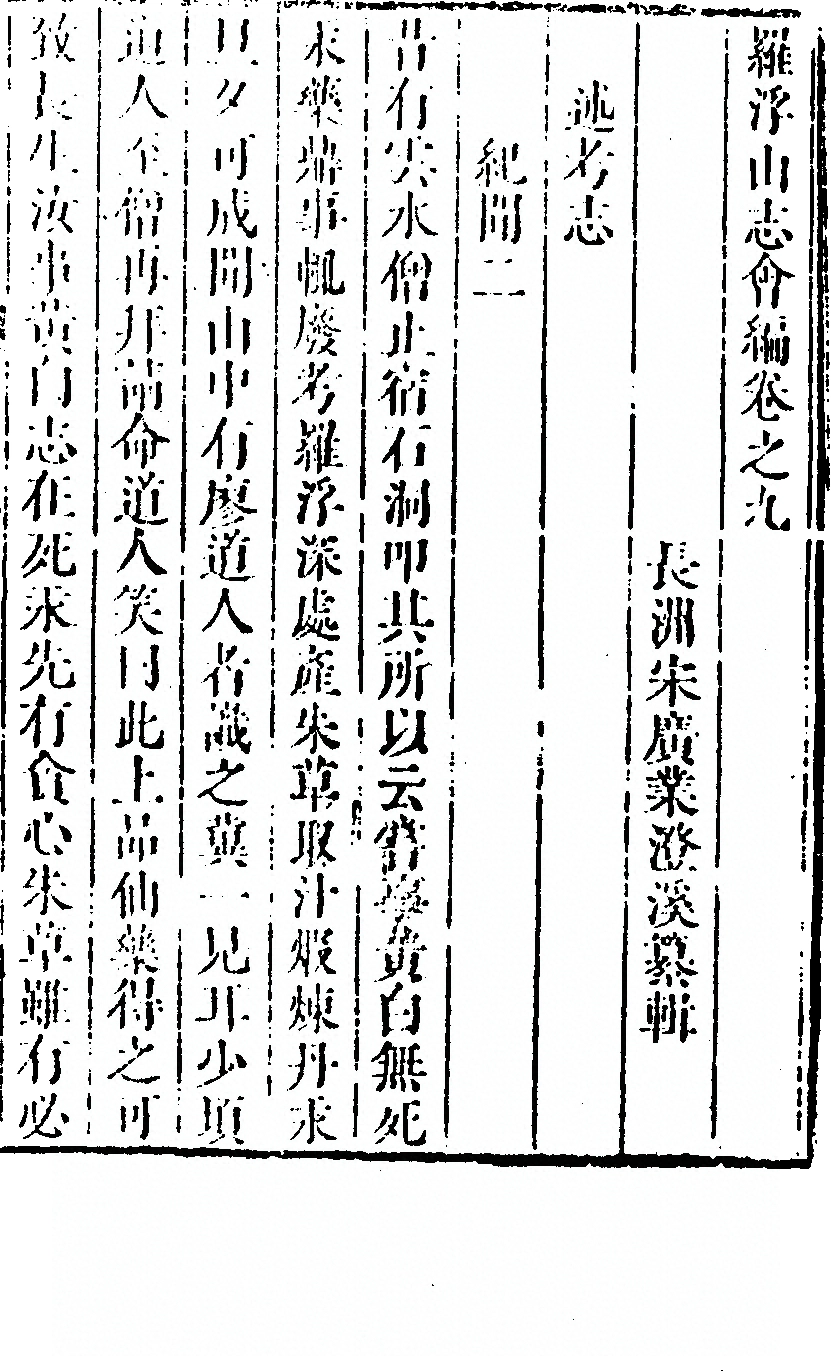 羅浮山志會編卷之九
長洲宋廣業澄溪纂輯
述考志
紀聞二
昔有雲水僧止宿石洞叩其所以云嘗學黃白無死
汞藥鼎事輒廢考羅浮深處產朱草取汁煅煉丹汞
旦夕可成聞山中有廖道人者識之冀一見耳少頃
道人至僧再拜請命道人笑曰此上品仙藥得之可
致長生汝事黃白志在死汞先有貪心朱草雖有必